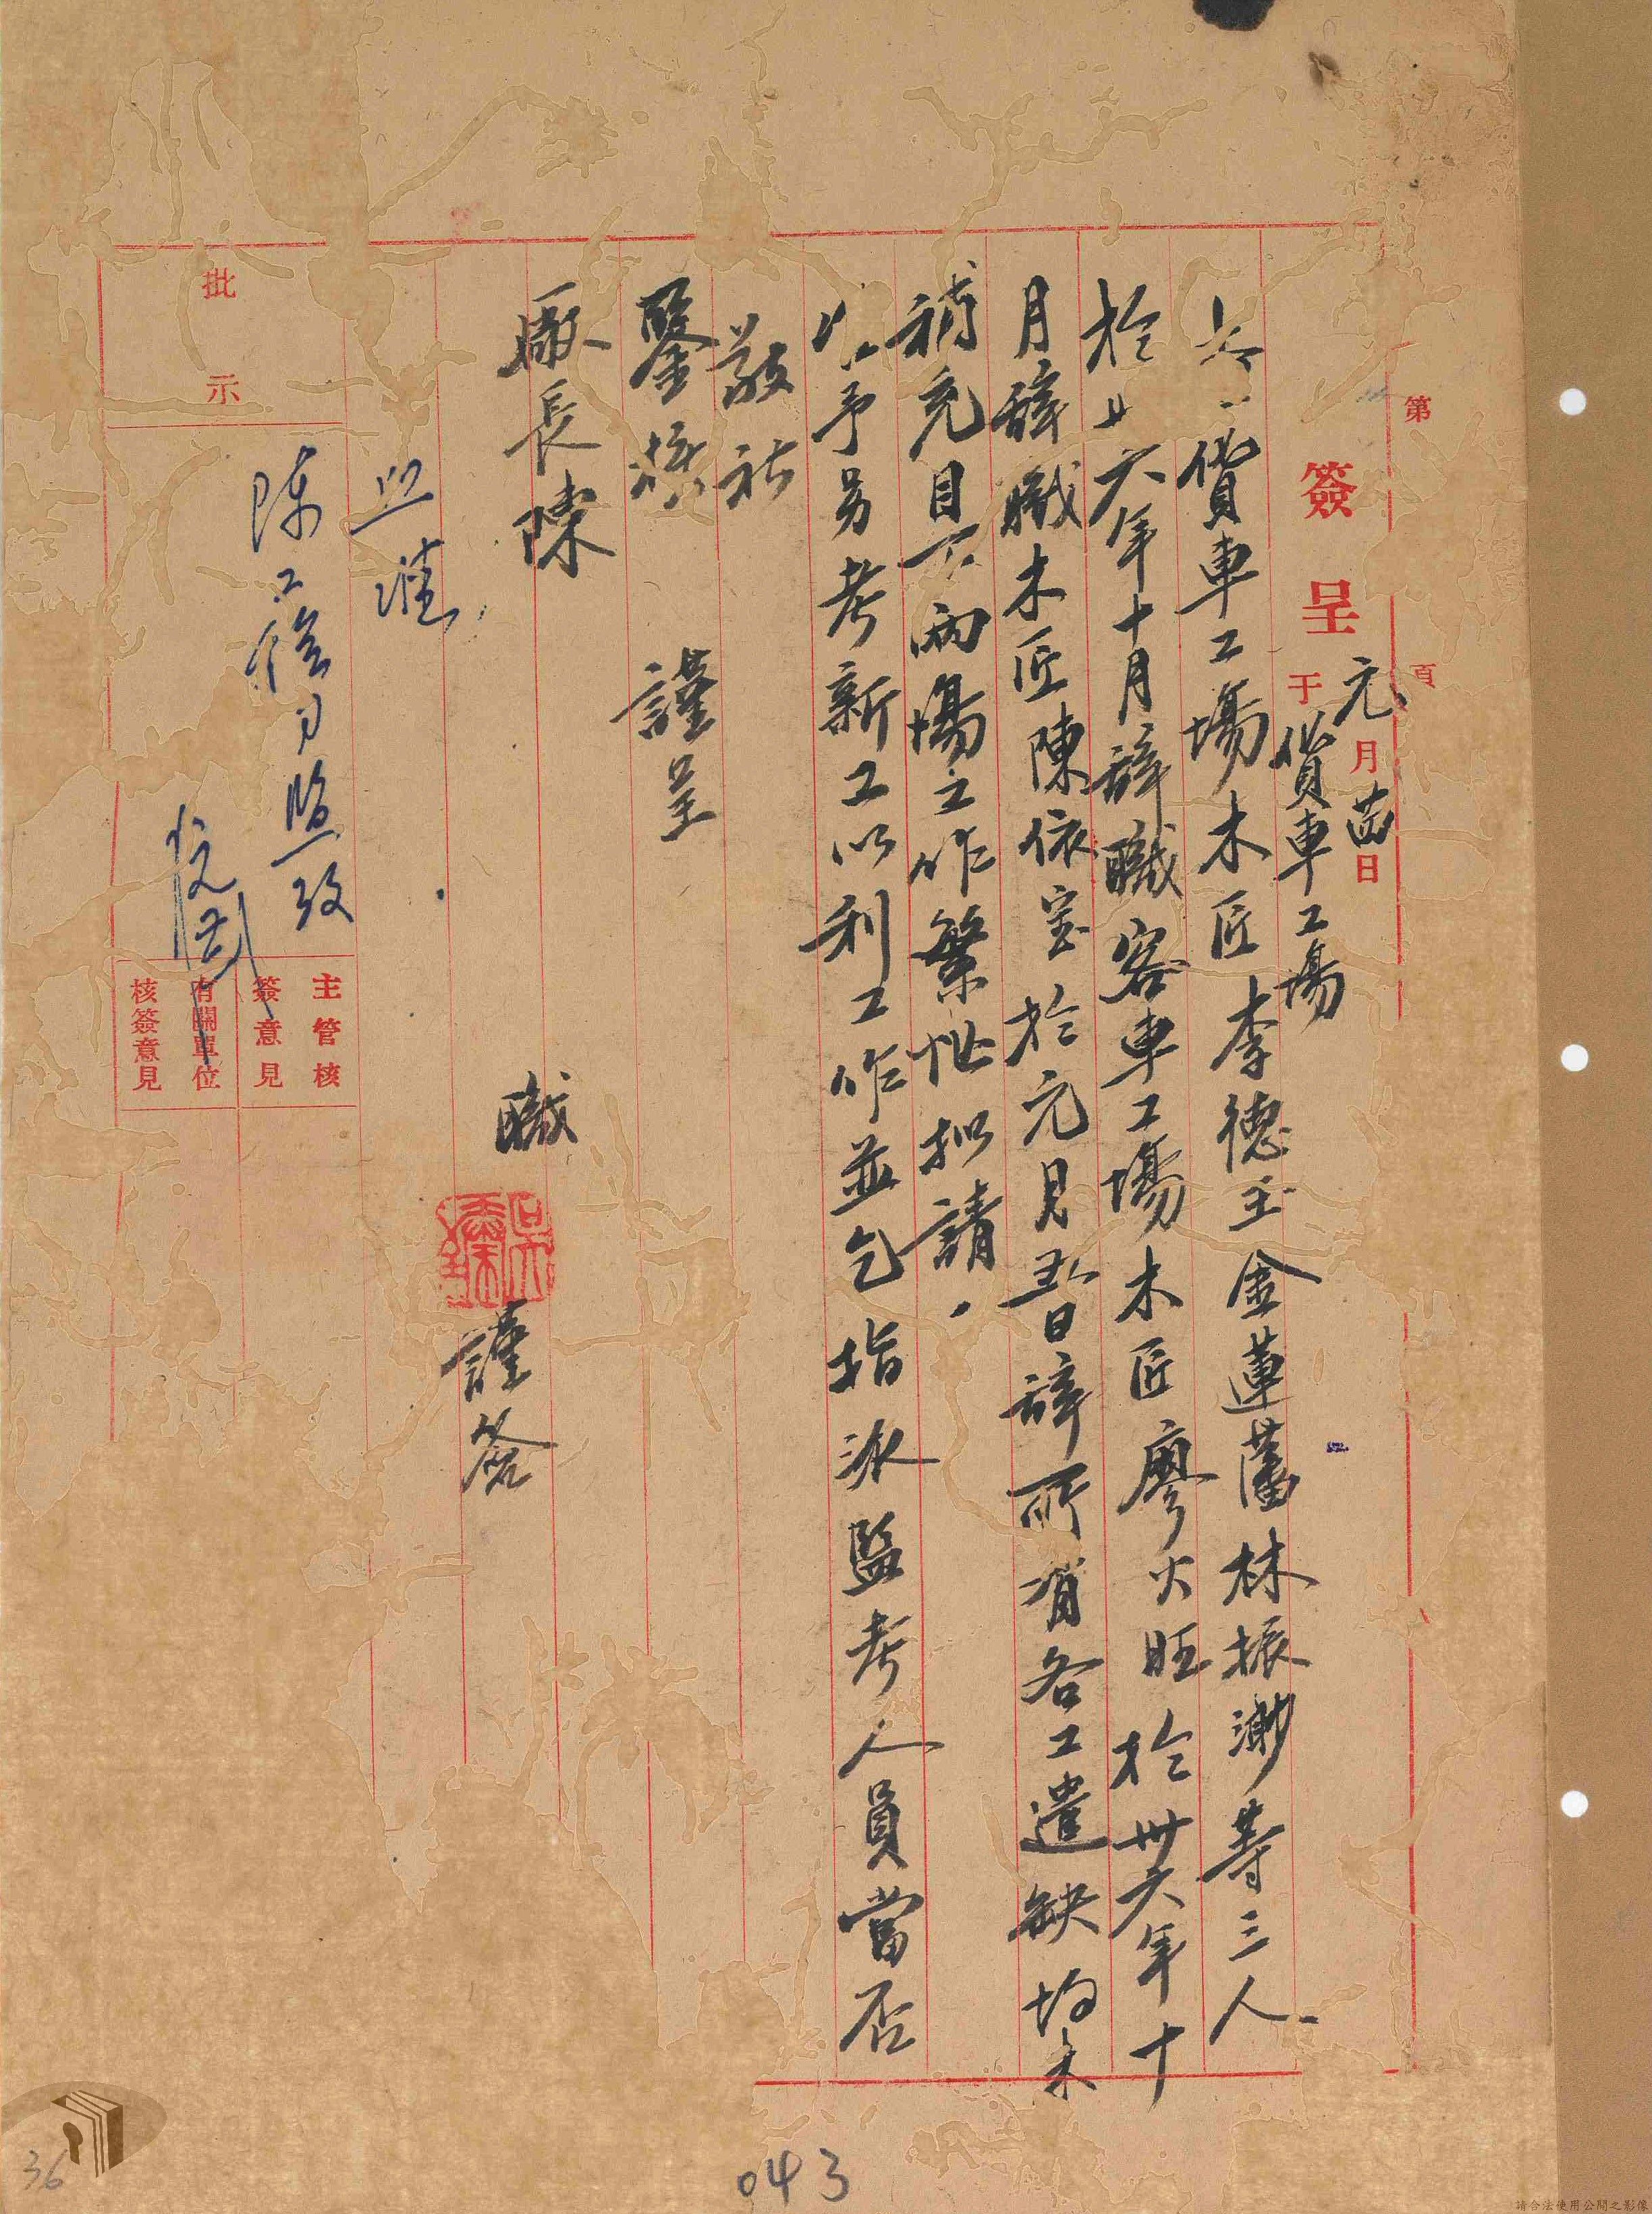 第 頁
簽呈 于貨車工場 元月廿四日
貨車工場木匠李德玉金蓮藩林振渺等三人
於卅六年十月辭職客車工場木匠廖火旺於卅六年十
月辭職木匠陳依宝於元月 日辭所有各工遺缺均未
補充目下兩場工作繁忙擬請
准予另考新工以利工作並乞指派監考人員當否
敬祈
鑒核 謹呈
廠長陳
職 謹簽
批示
照准
陳工務員監攷
主管核簽意見
有關單位核簽意見
043
36
請合法使用公開之影像